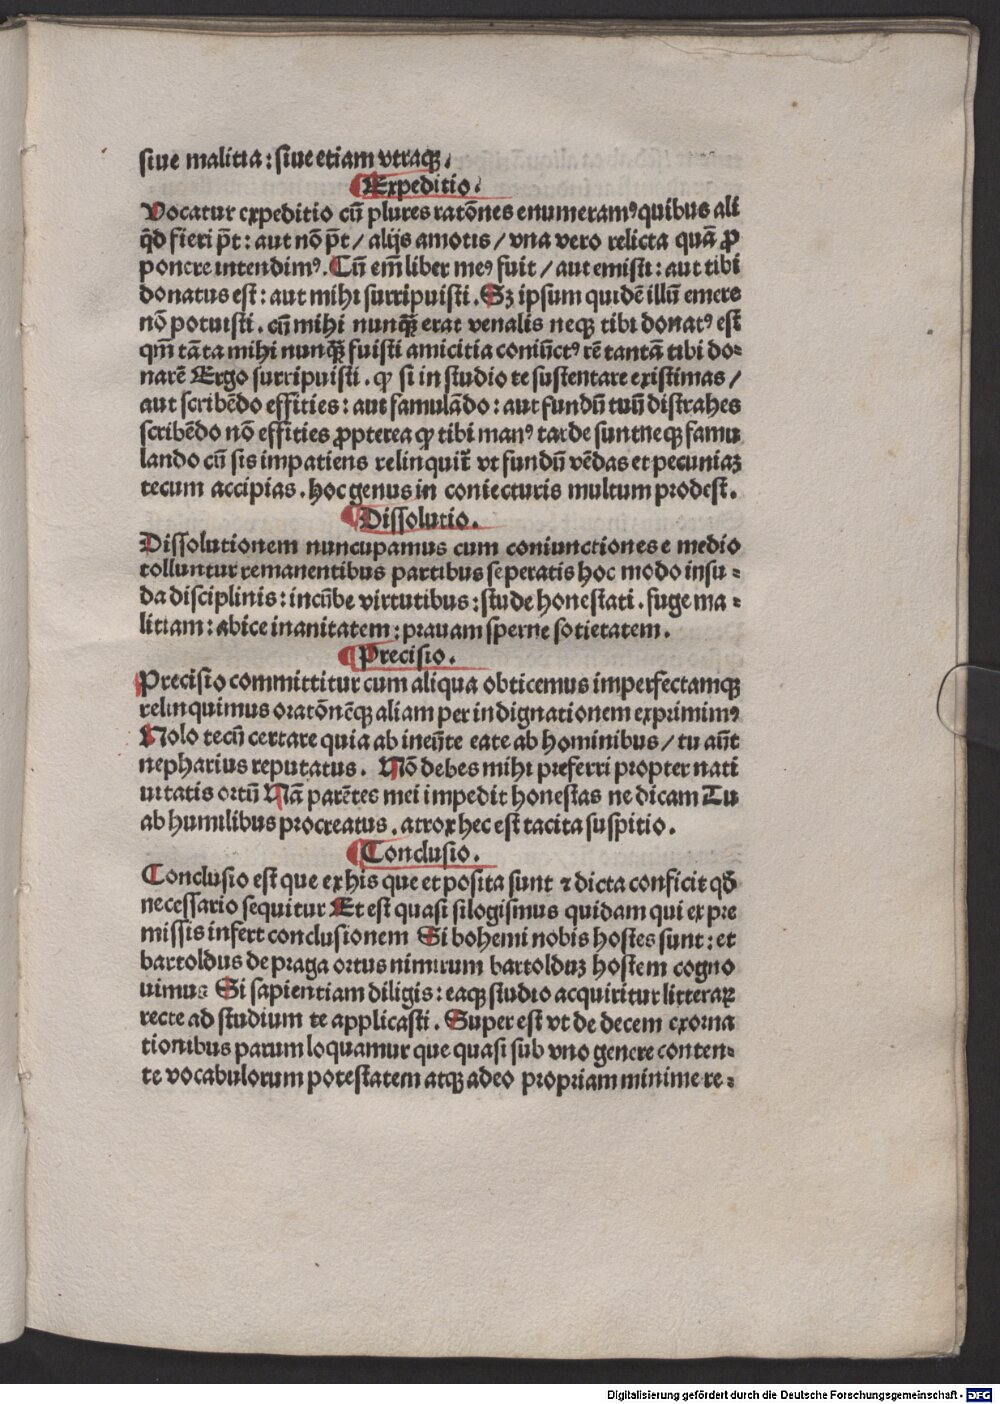 siue malitia : siue etiam vtraqꝫ.
Expeditio.
Vocatur expeditio cū plures ratōnes enumeramꝰ quibus ali
qͥd fieri pt̄ : aut nō pt̄ / alijs amotis / vna vero relicta quā ꝓ
ponere intendimꝰ. Cū em̄ liber meꝰ fuit / aut emisti : aut tibi
donatus est : aut mihi surripuisti. Sꝫ ipsum quidē illū emere
nō potuisti. cū mihi nunqꝫ̄ erat venalis neqꝫ tibi donatꝰ est
qm̄ tāta mihi nunqꝫ̄ fuisti amicitia coniūctꝰ rē tantā tibi do⸗
narē Ergo surripuisti. ꝙ si in studio te sustentare existimas /
aut scribēdo efficies : aut famulādo : aut fundū tuū distrahes
scribēdo nō efficies ꝓpterea ꝙ tibi manꝰ tarde sunt neqꝫ famu
lando cū sis impatiens relinquit᷑ vt fundū vēdas et pecuniaꝫ
tecum accipias. hoc genus in coniecturis multum prodest.
Dissolutio.
Dissolutionem nuncupamus cum coniunctiones e medio
tolluntur remanentibus partibus seperatis hoc modo insu⸗
da disciplinis : incūbe virtutibus : stude honestati. fuge ma⸗
litiam : abice inanitatem : prauam sperne sotietatem.
Precisio.
Precisio committitur cum aliqua obticemus imperfectamqꝫ
relinquimus oratōnēqꝫ aliam per indignationem exprimimꝰ
Nolo tecū certare quia ab ineūte eate ab hominibus / tu aūt
nepharius reputatus. Nō debes mihi preferri propter nati
uitatis ortū Nā parētes mei impedit honestas ne dicam Tu
ab humilibus procreatus. atrox hec est tacita suspitio.
Conclusio.
Conclusio est que ex his que et posita sunt ⁊ dicta conficit qđ
necessario sequitur Et est quasi silogismus quidam qui ex pre
missis infert conclusionem Si bohemi nobis hostes sunt : et
bartoldus de praga ortus nimirum bartolduꝫ hostem cogno
uimus Si sapientiam diligis : eaqꝫ studio acquiritur litteraꝝ
recte ad studium te applicasti. Super est vt de decem exorna
tionibus parum loquamur que quasi sub vno genere conten⸗
te vocabulorum potestatem atqꝫ adeo propriam minime re⸗
Digitalisierung gefördert durch die Deutsche Forschungsgemeinschaft - DFG